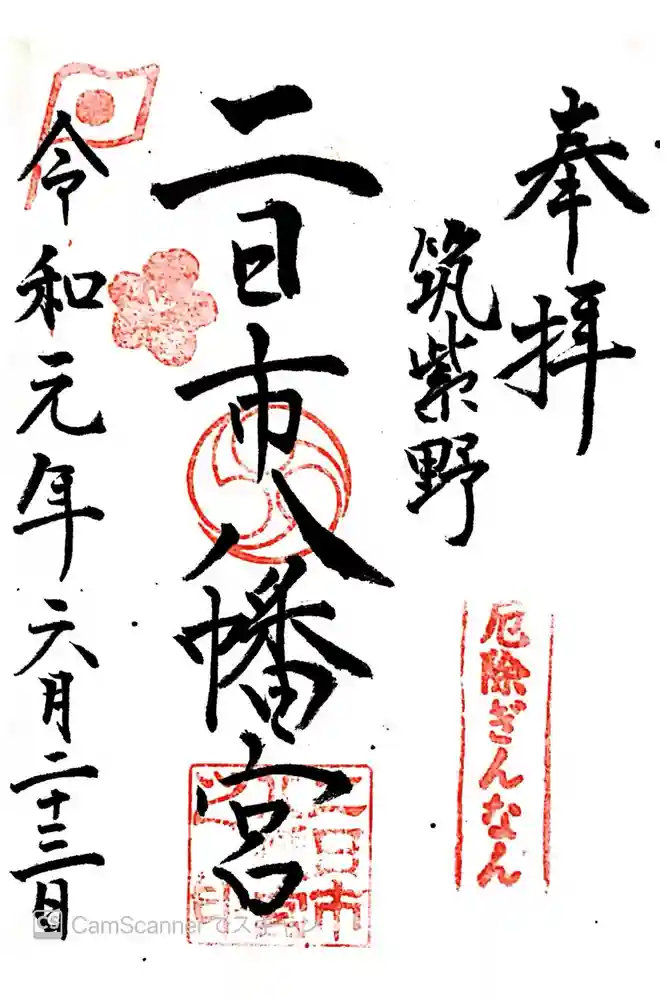 奉拝
筑紫野
厄除ぎんなん
二日市八幡宮
令和元年六月二十三日
CamScannerでスキャン